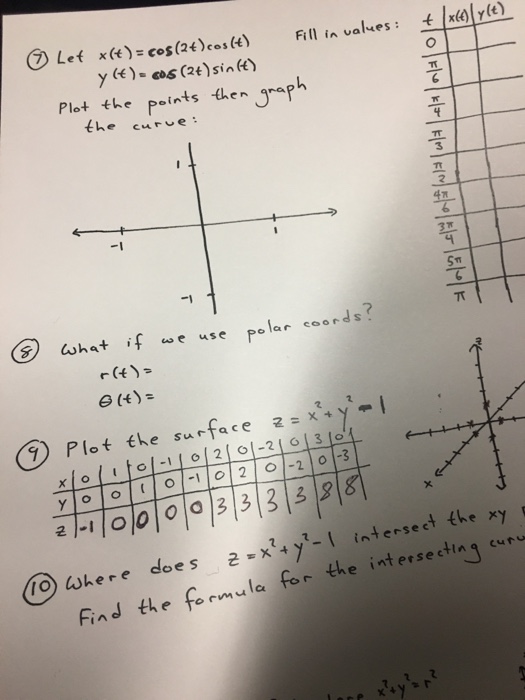 ⑦ Let x(t) = cos(2t)cos(t)
y(t) = cos(2t)sin(t)
Plot the points then graph
the curve:
Fill in values:
t x(t) y(t)
0
π/6
π/4
π/3
π/2
4π/6
3π/4
5π/6
π
1
-1 1
-1
⑧ What if we use polar coords?
r(t) =
θ(t) =
⑨ Plot the surface z = x² + y² - 1
x 0 1 0 -1 0 2 0 -2 0 3 0
y 0 0 1 0 -1 0 2 0 -2 0 -3
z -1 0 0 0 0 3 3 3 3 8 8
z
x
⑩ Where does z = x² + y² - 1 intersect the xy
Find the formula for the intersecting curv
x² + y² = r²